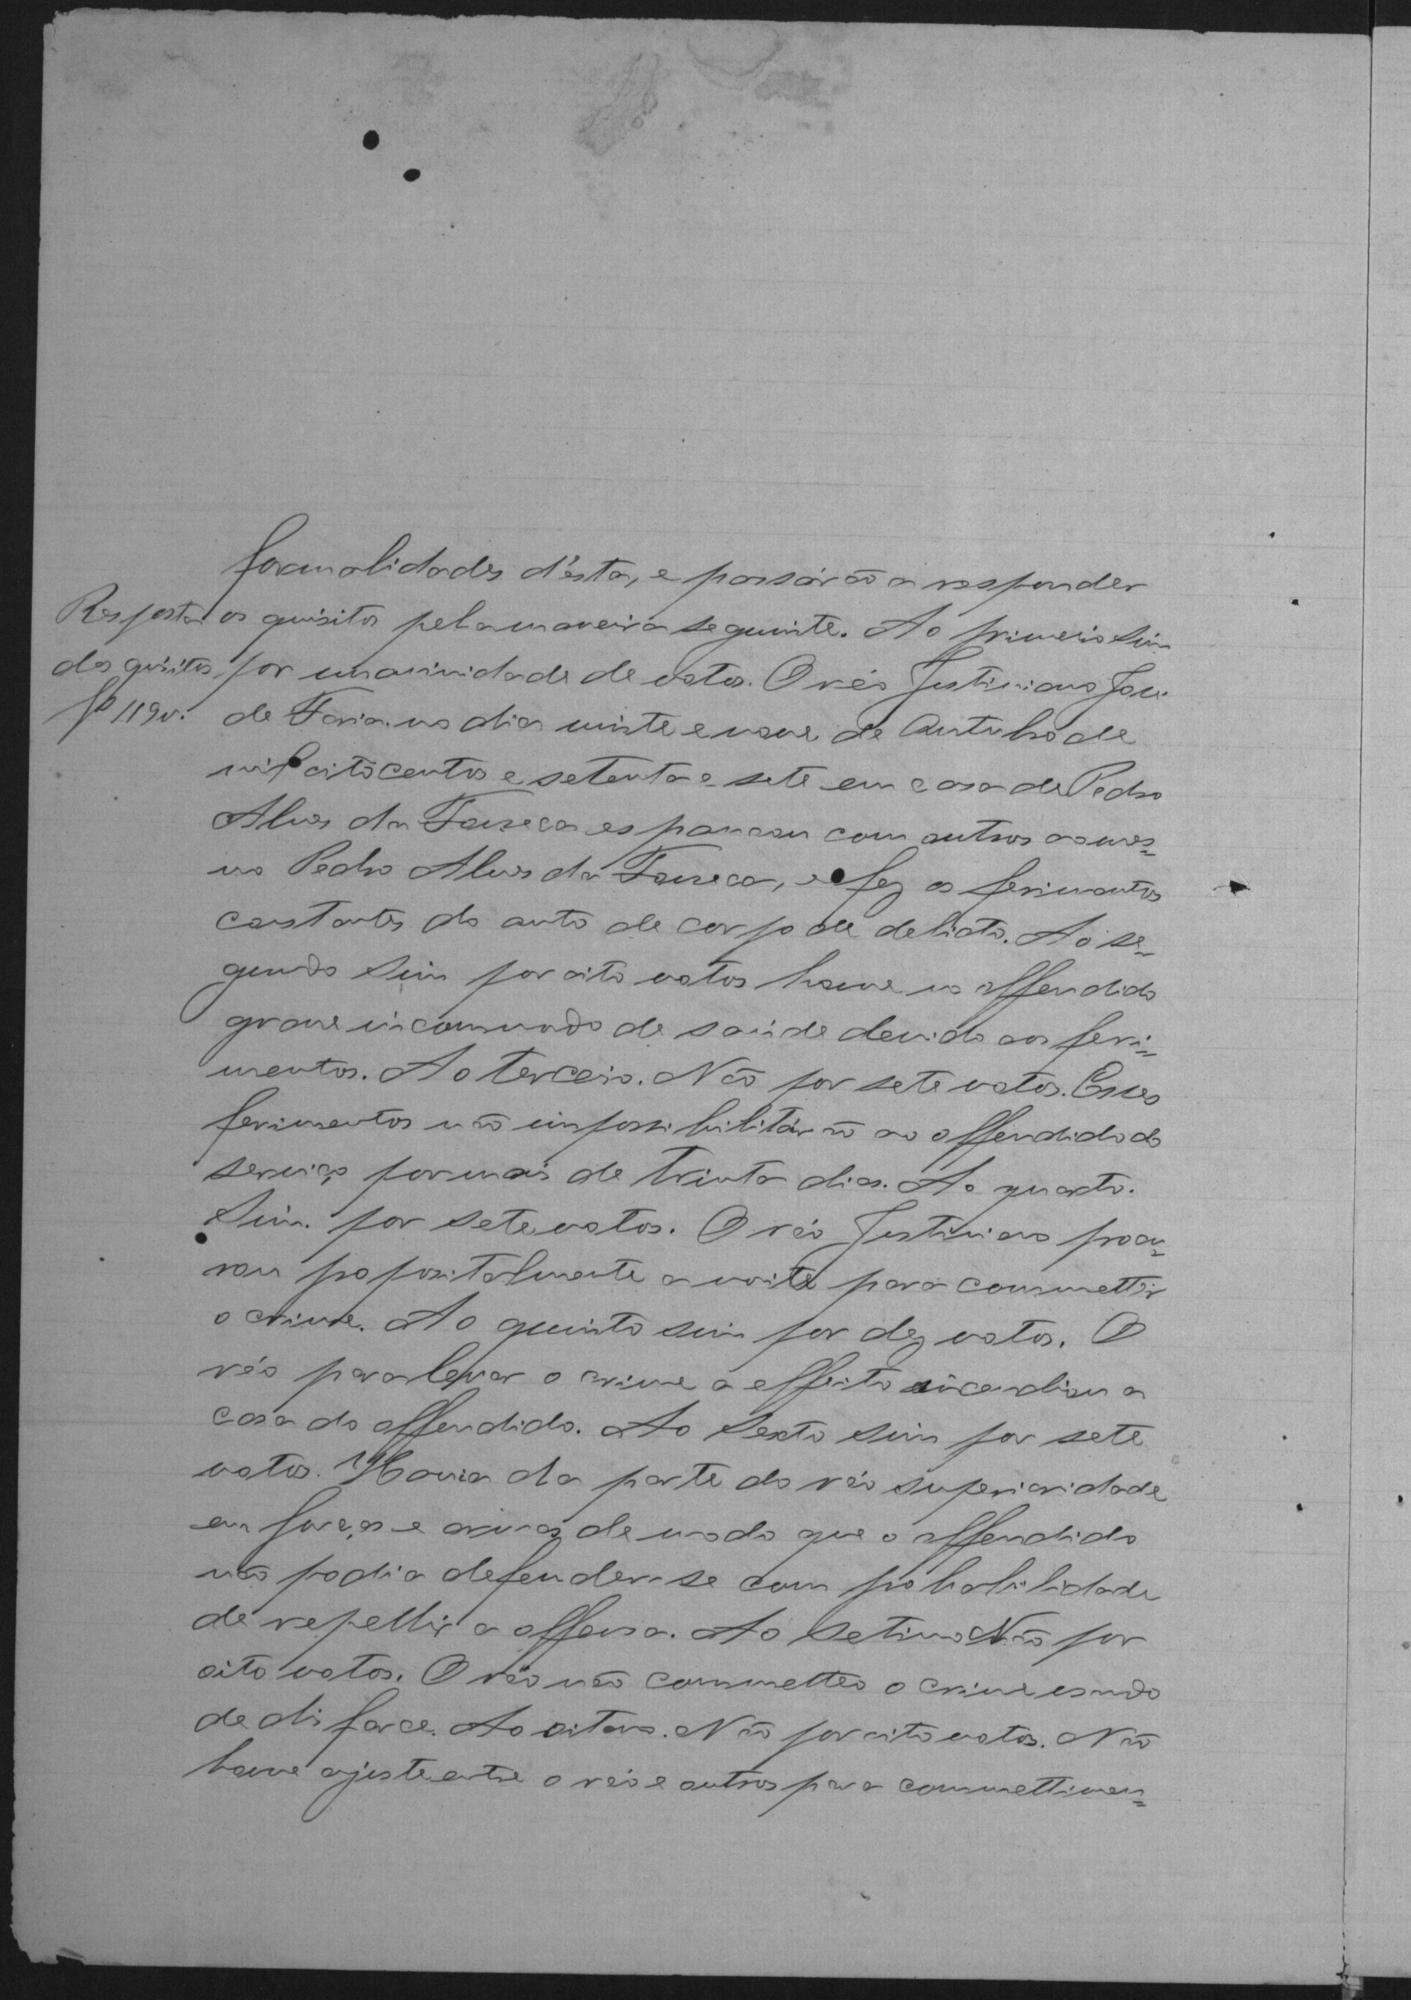 formalidades d'ésta, e passárão a responder
Resposta os quisitos pela maneira seguinte. Ao primeiro Sim
dos quisitos por unanimidade de votos. O réo Justiniano José
fs 119v. de Faria no dia vinte e nove de Outubro de
mil oitocentos e setenta e sete em casa de Pedro
Alves da Fonseca espancou com outros ao mes=
mo Pedro Alves da Fonseca, e fez os ferimentos
constantes do auto de corpo de delicto. Ao se=
gundo Sim por oito votos houve no offendido
grave incommodo de saúde devido aos feri=
mentos. Ao terceiro. Não por sete votos. Esses
ferimentos não impossibilitárão ao offendido do
serviço por mais de trinta dias. Ao quarto.
Sim. por sete votos. O réo Justiniano procu=
rou propositalmente a noite para commetter
o crime. Ao quinto sim por dez votos. O
réo para levar o crime a effeito incendiou a
casa do offendido. Ao Sexto sim por sete
votos. Havia da parte do réo superioridade
em forças e armas de modo que o offendido
não podia defender-se com probabilidade
de repellir a offensa. Ao Setimo Não por
oito votos. O réo não commetteo o crime usando
de disfarce. Ao oitavo. Não por oito votos. Não
houve ajuste entre o réo e outros para commettimen=